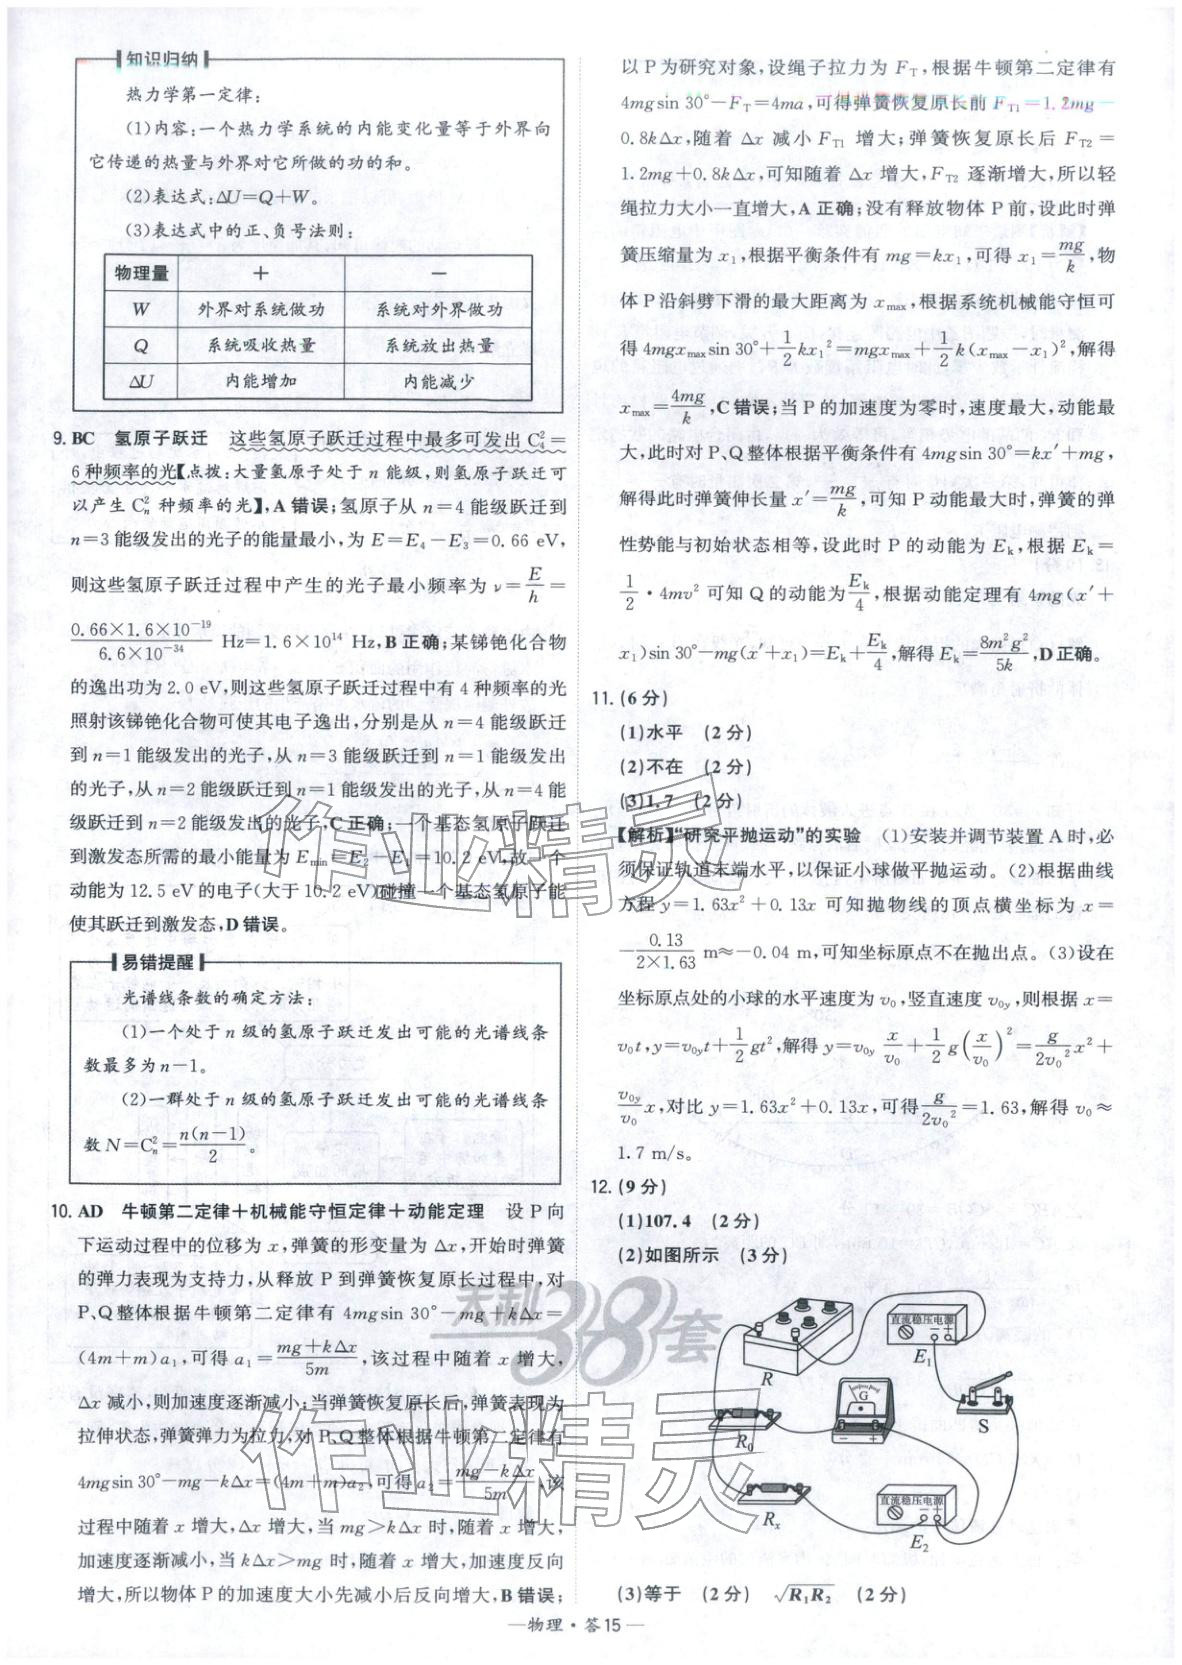 知识归纳
热力学第一定律:
(1)内容:一个热力学系统的内能变化量等于外界向
它传递的热量与外界对它所做的功的和。
(2)表达式:ΔU=Q+W。
(3)表达式中的正、负号法则:
物理量 + −
W 外界对系统做功 系统对外界做功
Q 系统吸收热量 系统放出热量
ΔU 内能增加 内能减少
9. BC 氢原子跃迁 这些氢原子跃迁过程中最多可发出 C₄²=
6 种频率的光【点拨:大量氢原子处于 n 能级,则氢原子跃迁可
以产生 Cₙ² 种频率的光】,A 错误;氢原子从 n=4 能级跃迁到
n=3 能级发出的光子的能量最小,为 E=E₄−E₃=0.66 eV,
则这些氢原子跃迁过程中产生的光子最小频率为 ν=E/h=
(0.66×1.6×10⁻¹⁹)/(6.6×10⁻³⁴) Hz=1.6×10¹⁴ Hz,B 正确;某锑铯化合物
的逸出功为 2.0 eV,则这些氢原子跃迁过程中有 4 种频率的光
照射该锑铯化合物可使其电子逸出,分别是从 n=4 能级跃迁
到 n=1 能级发出的光子,从 n=3 能级跃迁到 n=1 能级发出
的光子,从 n=2 能级跃迁到 n=1 能级发出的光子,从 n=4 能
级跃迁到 n=2 能级发出的光子,C 正确;一个基态氢原子跃迁
到激发态所需的最小能量为 Emin=E₂−E₁=10.2 eV,故一个
动能为 12.5 eV 的电子(大于 10.2 eV)碰撞一个基态氢原子能
使其跃迁到激发态,D 错误。
易错提醒
光谱线条数的确定方法:
(1)一个处于 n 级的氢原子跃迁发出可能的光谱线条
数最多为 n−1。
(2)一群处于 n 级的氢原子跃迁发出可能的光谱线条
数 N=Cₙ²=n(n−1)/2。
10. AD 牛顿第二定律+机械能守恒定律+动能定理 设 P 向
下运动过程中的位移为 x,弹簧的形变量为 Δx,开始时弹簧
的弹力表现为支持力,从释放 P 到弹簧恢复原长过程中,对
P、Q 整体根据牛顿第二定律有 4mgsin 30°−mg+kΔx=
(4m+m)a₁,可得 a₁=(mg+kΔx)/5m,该过程中随着 x 增大,
Δx 减小,则加速度逐渐减小;当弹簧恢复原长后,弹簧表现为
拉伸状态,弹簧弹力为拉力,对 P、Q 整体根据牛顿第二定律有
4mgsin 30°−mg−kΔx=(4m+m)a₂,可得 a₂=(mg−kΔx)/5m,该
过程中随着 x 增大,Δx 增大,当 mg>kΔx 时,随着 x 增大,
加速度逐渐减小,当 kΔx>mg 时,随着 x 增大,加速度反向
增大,所以物体 P 的加速度大小先减小后反向增大,B 错误;
以 P 为研究对象,设绳子拉力为 F_T,根据牛顿第二定律有
4mgsin 30°−F_T=4ma,可得弹簧恢复原长前 F_T1=1.2mg−
0.8kΔx,随着 Δx 减小 F_T1 增大;弹簧恢复原长后 F_T2=
1.2mg+0.8kΔx,可知随着 Δx 增大,F_T2 逐渐增大,所以轻
绳拉力大小一直增大,A 正确;没有释放物体 P 前,设此时弹
簧压缩量为 x₁,根据平衡条件有 mg=kx₁,可得 x₁=mg/k,物
体 P 沿斜劈下滑的最大距离为 xmax,根据系统机械能守恒可
得 4mgxmax sin 30°+½kx₁²=mgxmax+½k(xmax−x₁)²,解得
xmax=4mg/k,C 错误;当 P 的加速度为零时,速度最大,动能最
大,此时对 P、Q 整体根据平衡条件有 4mgsin 30°=kx′+mg,
解得此时弹簧伸长量 x′=mg/k,可知 P 动能最大时,弹簧的弹
性势能与初始状态相等,设此时 P 的动能为 Eₖ,根据 Eₖ=
½·4mv² 可知 Q 的动能为 Eₖ/4,根据动能定理有 4mg(x′+
x₁)sin 30°−mg(x′+x₁)=Eₖ+Eₖ/4,解得 Eₖ=8m²g²/5k,D 正确。
11. (6 分)
(1)水平 (2 分)
(2)不在 (2 分)
(3)1.7 (2 分)
【解析】“研究平抛运动”的实验 (1)安装并调节装置 A 时,必
须保证轨道末端水平,以保证小球做平抛运动。(2)根据曲线
方程 y=1.63x²+0.13x 可知抛物线的顶点横坐标为 x=
−0.13/(2×1.63) m≈−0.04 m,可知坐标原点不在抛出点。(3)设在
坐标原点处的小球的水平速度为 v₀,竖直速度 v₀y,则根据 x=
v₀t,y=v₀yt+½gt²,解得 y=v₀y x/v₀+½g(x/v₀)²=g/(2v₀²)x²+
v₀y/v₀ x,对比 y=1.63x²+0.13x,可得 g/(2v₀²)=1.63,解得 v₀≈
1.7 m/s。
12. (9 分)
(1)107.4 (2 分)
(2)如图所示 (3 分)
直流稳压电源
− +
E₁
R
G
− +
S
R₀
Rₓ
直流稳压电源
− +
E₂
(3)等于 (2 分) √R₁R₂ (2 分)
作业精灵
天利38套
作业精灵
—物理·答15—